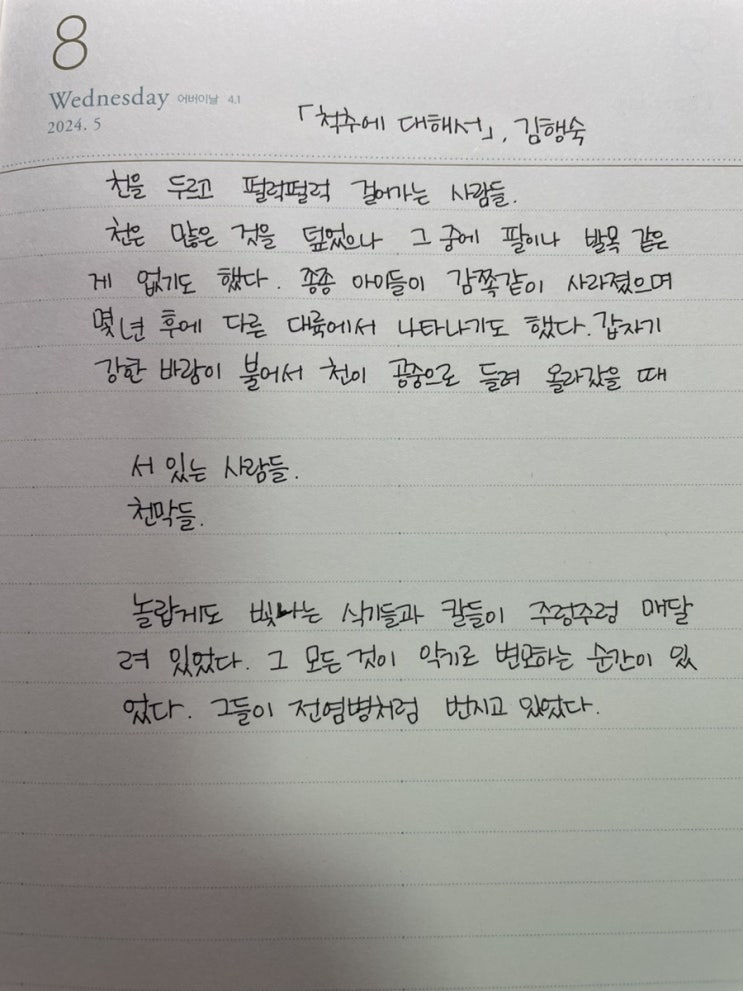 8
Wednesday 어버이날 4.1
2024. 5
「척추에 대해서」, 김행숙
천을 두르고 펄럭펄럭 걸어가는 사람들.
천은 많은 것을 덮었으나 그 중에 팔이나 발목 같은
게 없기도 했다. 종종 아이들이 감쪽같이 사라졌으며
몇 년 후에 다른 대륙에서 나타나기도 했다. 갑자기
강한 바람이 불어서 천이 공중으로 들려 올라갔을 때
서 있는 사람들.
천막들.
놀랍게도 빛나는 식기들과 칼들이 주렁주렁 매달
려 있었다. 그 모든 것이 악기로 변모하는 순간이 있
었다. 그들이 전염병처럼 번지고 있었다.